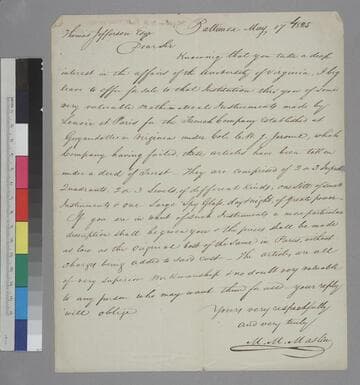 Thomas Jefferson Esqr Baltimore May 17th 1825
Dear Sir
Knowing that you take a deep
interest in the affairs of the University of Virginia, I beg
leave to offer for sale to that Institution this year of some
very valuable Mathematical Instruments made by
Lenoir at Paris for the French Company established at
Guyandotte in Virginia under Col which
Company having failed, these articles have been taken
under a deed of Trust. They are comprised of 2 or 3
Quadrants, 2 or 3 Levels of different kinds, one sett of small
Instruments & one Large Spy Glass day & night of great power
If you are in want of such Instruments a more particular
description shall be given you & the prices shall be made
as low as the original cost of the same in Paris, without
charges being added to said cost. The articles are all
of very superior Workmanship & no doubt very valuable
to any person who may want them for use your reply
will oblige
Yours very respectfully
and very truly
M. M. Maslin